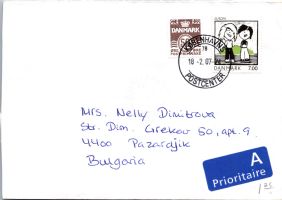 DANMARK
EUROPA
DANMARK 7.00
KØBENHAVN
18
18.-2.07
POSTCENTER
Mrs. Nelly Dimitrova
Str. Dim. Grekov 50, apt. 9
4400 Pazardjik
Bulgaria
A
Prioritaire